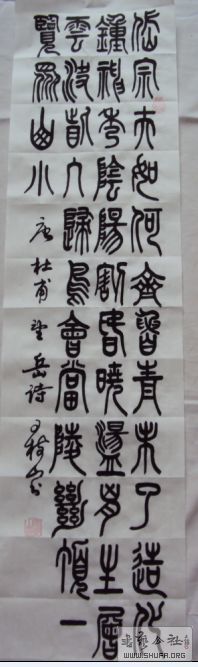 岱宗夫如何齊魯青未了造化
鍾神秀陰陽割昏曉盪胸生層
雲決眥入歸鳥會當陵絕頂一
覽眾山小 唐杜甫望岳詩
WWW.SHUFA.ORG